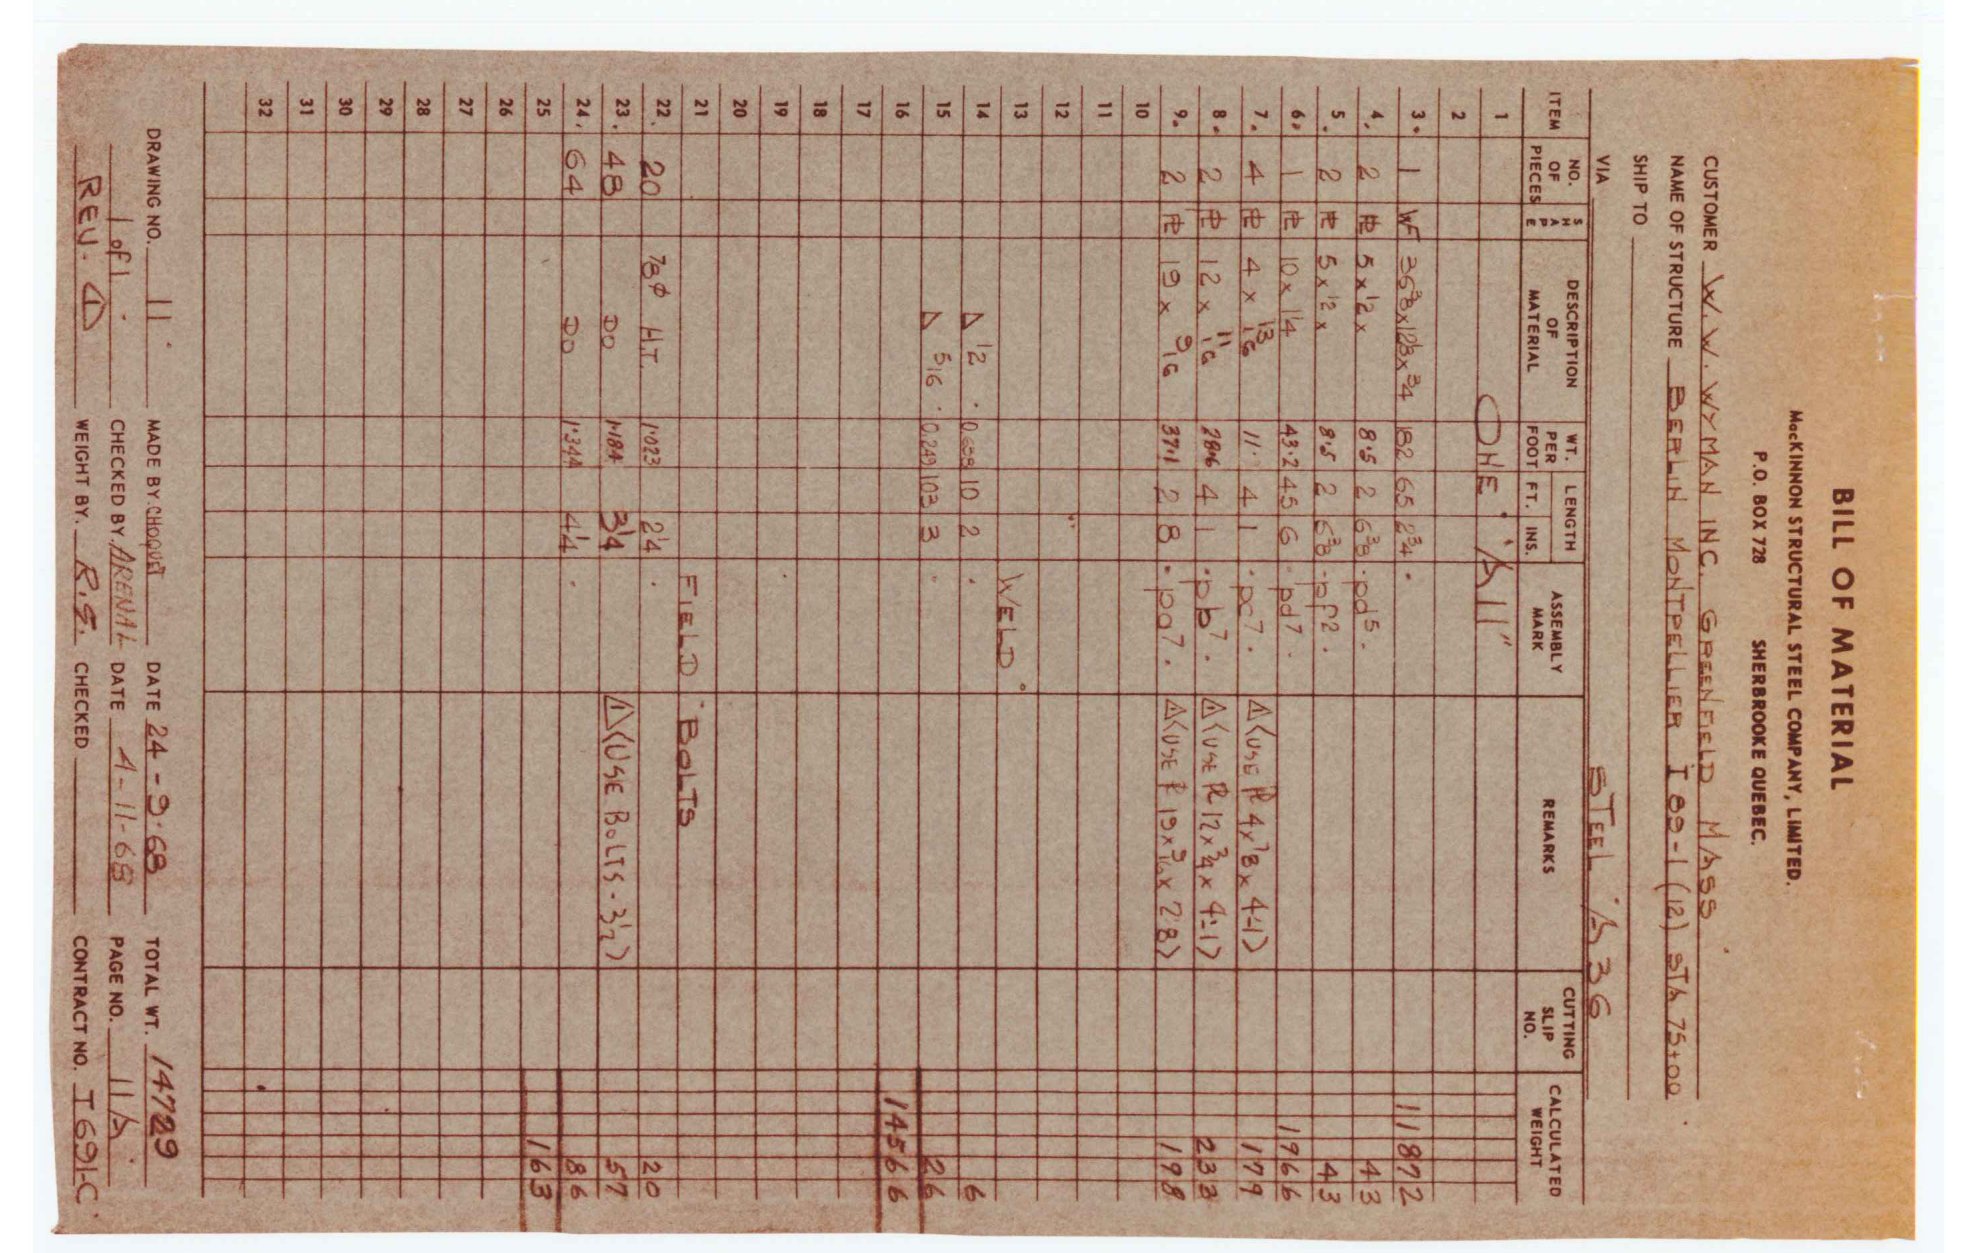 BILL OF MATERIAL
MacKINNON STRUCTURAL STEEL COMPANY, LIMITED.
P.O. BOX 728 SHERBROOKE QUEBEC.
CUSTOMER W. W. WYMAN INC. GREENFIELD MASS
NAME OF STRUCTURE BERLIN MONTPELLIER I 89-1 (12) STA 75+00
SHIP TO
VIA STEEL A36
ITEM NO. OF PIECES SHAPE DESCRIPTION OF MATERIAL WT. PER FOOT LENGTH FT. INS. ASSEMBLY MARK REMARKS CUTTING SLIP NO. CALCULATED WEIGHT
1 ONE "A11"
2
3. 1 WF 36 3/8 x 12 1/8 x 3/4 182 65 2 3/4 11872
4. 2 PL 5 x 1/2 x 8.5 2 6 3/8 pd5. 43
5. 2 PL 5 x 1/2 x 8.5 2 6 3/8 pf2. 43
6. 1 PL 10 x 1 1/4 43.2 45 6 pd7. 1966
7. 4 PL 4 x 13/16 11. 4 1 pc7. △1 (USE PL 4 x 7/8 x 4-1) 179
8. 2 PL 12 x 11/16 28.6 4 1 pb7. △1 (USE PL 12 x 3/4 x 4-1) 233
9. 2 PL 19 x 9/16 37.1 2 8 pa7. △1 (USE PL 19 x 9/16 x 2-8) 198
10
11
12
13 WELD.
14 △ 1/2 10 2 6
15 △ 5/16 0.249 103 3 26
16 14566
17
18
19
20
21 FIELD BOLTS
22. 20 7/8 ø H.T. 1.023 2 1/4 20
23. 48 DO 1.184 3 1/4 △1 (USE BOLTS - 3 1/2) 57
24. 64 DO 1.344 4 1/4 86
25 163
26
27
28
29
30
31
32
DRAWING NO. 11 MADE BY. CHOQUET DATE 24-9-68 TOTAL WT. 14729
1 of 1 CHECKED BY ARENAL DATE 4-11-68 PAGE NO. 11A
REV. △1 WEIGHT BY. CHECKED CONTRACT NO. I691-C